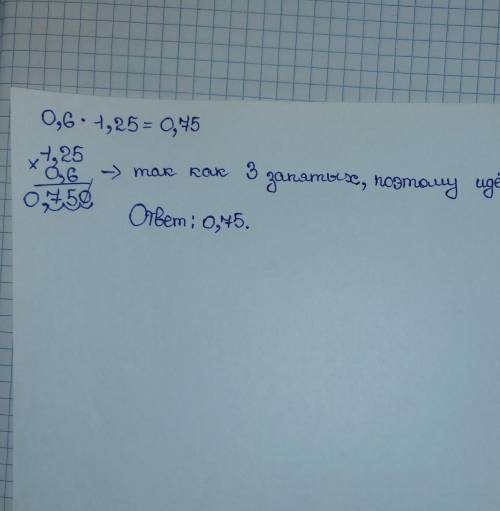 0,6 · 1,25 = 0,75
× 1,25
0,6 → так как 3 запятых, поэтому идё
0,750
Ответ: 0,75.